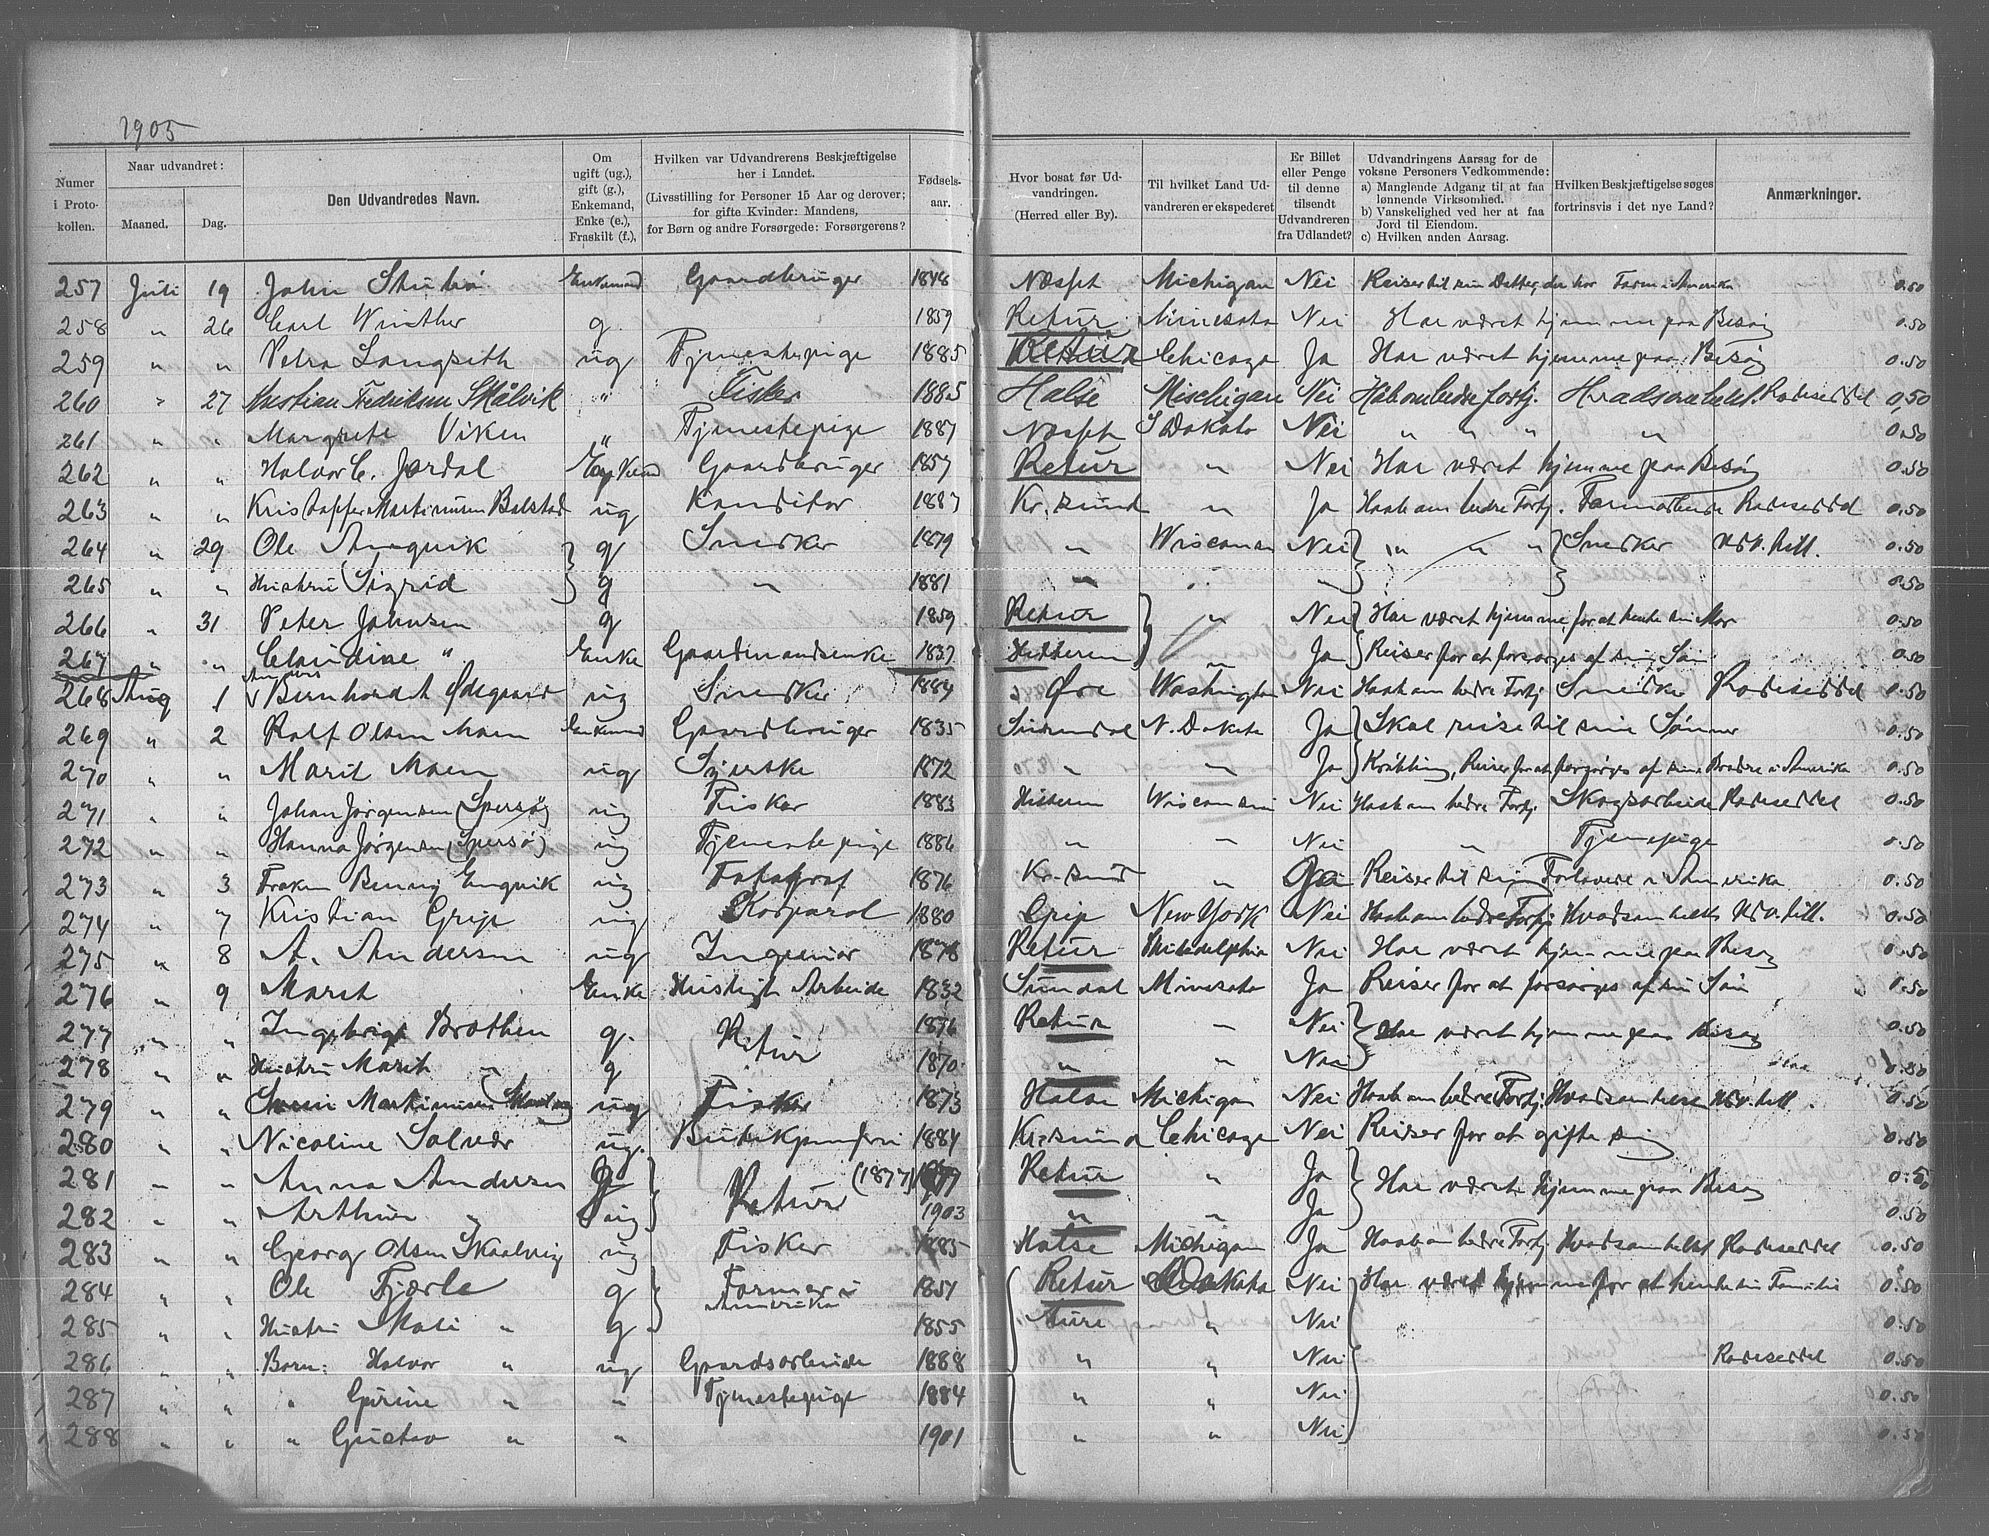 1905
Numer i Proto-kollen. Naar udvandret: Maaned. Dag. Den Udvandredes Navn. Om ugift (ug.), gift (g.), Enkemand, Enke (e.), Fraskilt (f.), Hvilken var Udvandrerens Beskjæftigelse her i Landet. (Livsstilling for Personer 15 Aar og derover; for gifte Kvinder: Mandens, for Børn og andre Forsørgede: Forsørgerens? Fødsels-aar. Hvor bosat før Ud-vandringen. (Herred eller By). Til hvilket Land Ud-vandreren er ekspederet Er Billet eller Penge til denne tilsendt Udvandreren fra Udlandet? Udvandringens Aarsag for de voksne Personers Vedkommende: a) Manglende Adgang til at faa lønnende Virksomhed. b) Vanskelighed ved her at faa Jord til Eiendom. c) Hvilken anden Aarsag. Hvilken Beskjæftigelse søges fortrinsvis i det nye Land? Anmærkninger.
257 Juli 19 John Stubø Enkemand Gaardbruger 1848 Næsset Michigan Nei Reiser til sin Datter, der har Farm i Amerika 0.50
258 " 26 Carl Winther g. 1859 Retur Minesota Nei Har været hjemme paa Besøg 0.50
259 " " Petra Langseth ug Tjenestepige 1885 Retur Chicago Ja Har været hjemme paa Besøg 0.50
260 " 27 Kristian Fredriksen Skålvik " Fisker 1885 Halse Mischigan Nei Håb om bedre fortj. Hvadsomhelst. Rodeseddel 0,50
261 " " Margrete Viken " Tjenestepige 1887 Næsset S Dakota Nei " " " " 0.50
262 " " Halvor C. Jordal Enkem Gaardbruger 1857 Retur " Nei Har været hjemme paa Besøg 0.50
263 " " Kristoffer Martinusen Bolstad ug Konditor 1887 Kr. sund " Ja Haab om bedre Fortj. Farmarbeide Rodeseddel 0.50
264 " 29 Ole Angvik g Snedker 1879 " Wisconsin Nei " " " Snedker Udv. till. 0.50
265 " " Hustru Sigrid g " 1881 " " " 0.50
266 " 31 Peter Johnsen g 1859 Retur " Nei Har været hjemme, for at hente sin Mor 0.50
267 " " Claudine " Enke Gaardmandsenke 1837 Hitteren Ja Reiser for at forsørges af sin Søn 0.50
268 Aug 1 Bernhard A Ødegaard ug Snedker 1884 Øre Washington Nei Haab om bedre Fortj. Snedker Rodeseddel 0.50
269 " 2 Rolf Olsen Moen Enkemand Gaardbruger 1835 Surendal N. Dakota Ja Skal reise til sine Sønner 0.50
270 " " Marit Moen ug Syerske 1872 " " Ja Krøbling, Reiser for at forsørges af sine Brødre i Amerika 0.50
271 " " Johan Jørgensen (Spersø) ug Fisker 1883 Hitteren Wisconsin Nei Haab om bedre Fortj. Skogsarbeide Rodeseddel 0.50
272 " " Hanna Jørgensen (Spersø) ug Tjenestepige 1886 " " Nei " Tjenepige 0.50
273 " 3 Frøken Benny Engvik ug Fotograf 1876 Kr. sund " Ja Reiser til sin Forlovede i Amerika 0.50
274 " 7 Kristian Grip ug Korporal 1880 Grip New York Nei Haab om bedre Fortj. Hvadsomhelst Udv. till. 0.50
275 " 8 A. Andersen ug Ingeniør 1878 Retur Philadelphia Nei Har været hjemme paa Besøg 0.50
276 " 9 Marit Enke Husligt Arbeide 1832 Sundal Minesota Ja Reiser for at forsørges af sin Søn 0.50
277 " " Ingebrigt Brøthen g. Retur 1876 Retur " Nei Har været hjemme paa Besøg 0.50
278 " " Hustru Marit " g 1870 " " Nei 0.50
279 " " Martinusen ug Fisker 1873 Halse Michigan Nei Haab om bedre Fortj. Hvadsomhelst Udv. till. 0.50
280 " " Nicoline Solvær ug. Butikjomfru 1884 Kr. sund Chicago Nei Reiser for at gifte sig 0.50
281 " " Anna Andersen g Retur (1877) Retur " Ja Har været hjemme paa Besøg 0.50
282 " " Arthur " ug 1903 " " Ja 0.50
283 " " Georg Olsen Skaalvig ug Fisker 1885 Halse Michigan Ja Haab om bedre Fortj. Hvadsomhelst Rodeseddel 0.50
284 " " Ole Fjærle g Farmer i Amerika 1851 Retur Dakota Nei Har været hjemme for at hente sin Familie 0.50
285 " " Hustru Mali " g 1855 Aure " Nei 0.50
286 " " Børn: Halvor " ug Gaardsarbeide 1888 " " Nei Rodeseddel 0.50
287 " " " Gurine " " Tjenestepige 1884 " " Nei 0.50
288 " " " Gustav " " 1901 " " Nei 0.50